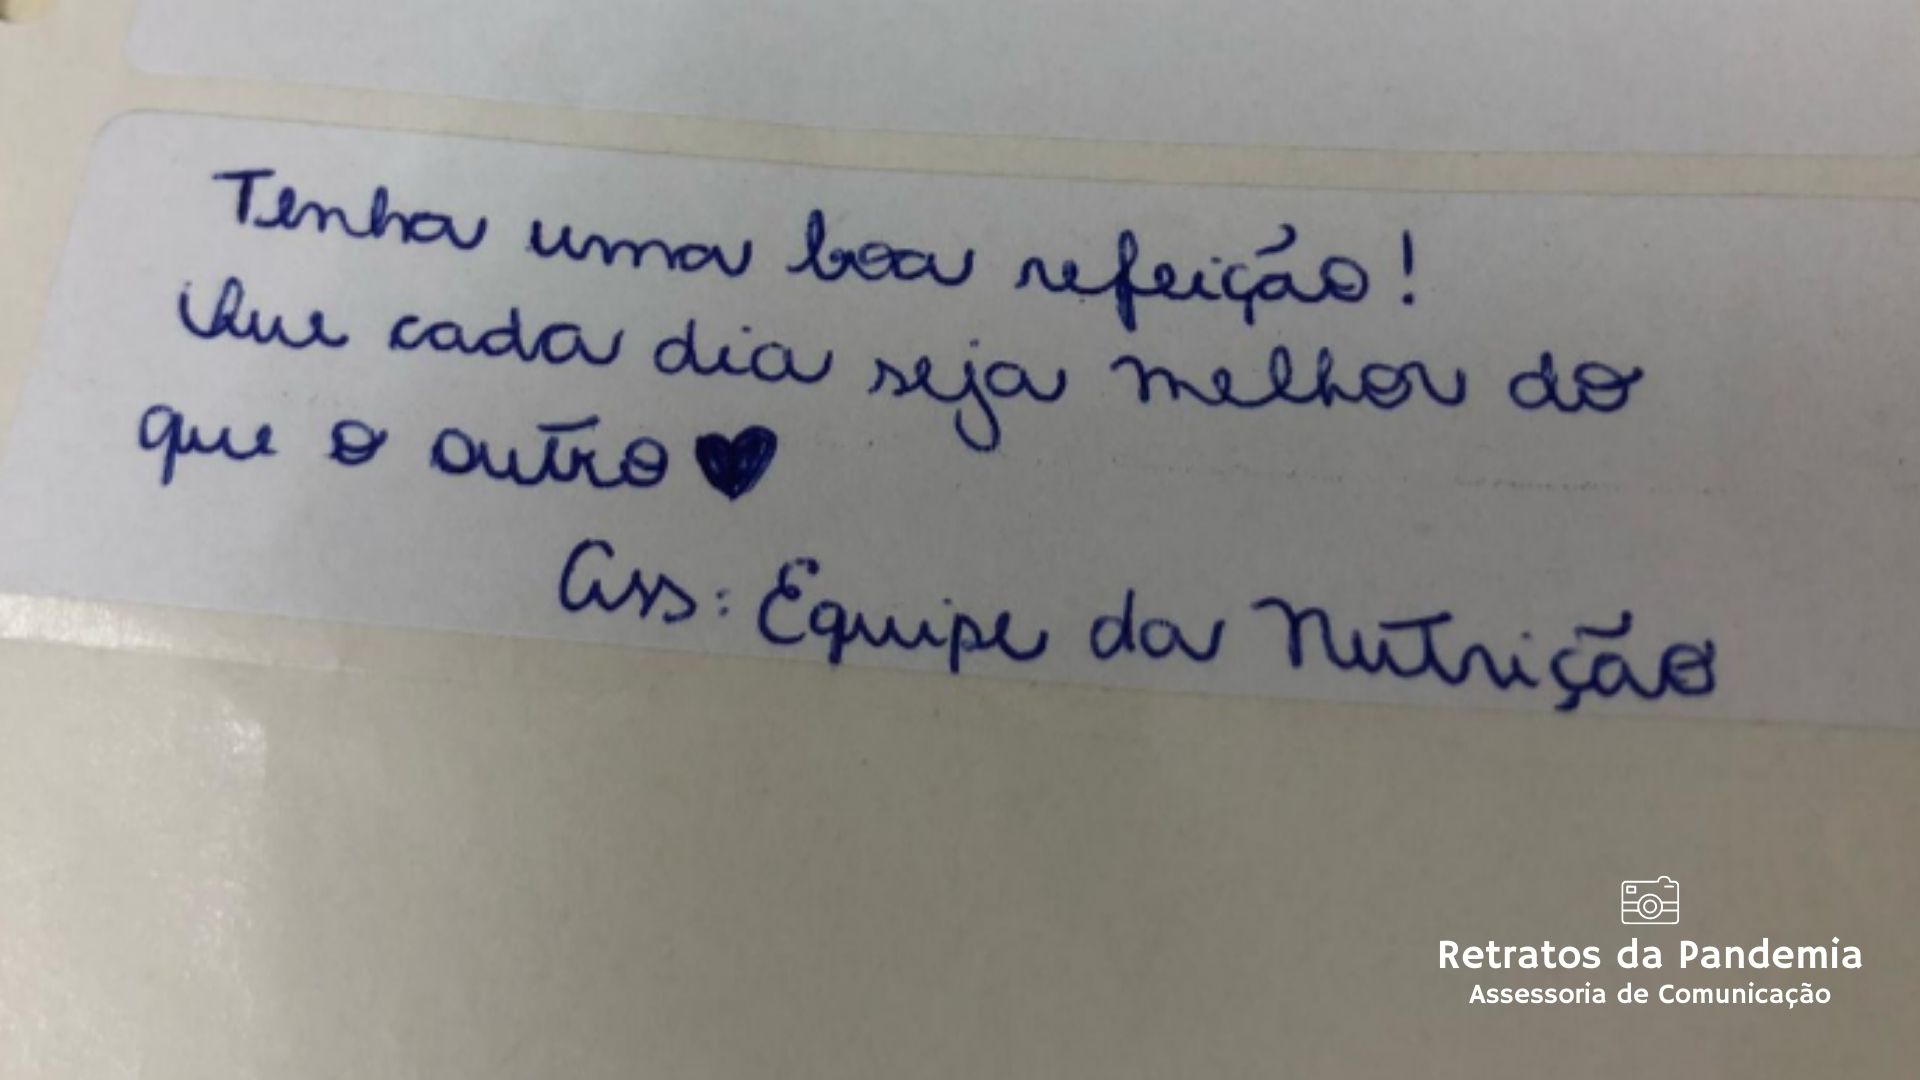 Tenha uma boa refeição!
Que cada dia seja melhor do
que o outro ♥
Ass: Equipe da Nutrição
Retratos da Pandemia
Assessoria de Comunicação